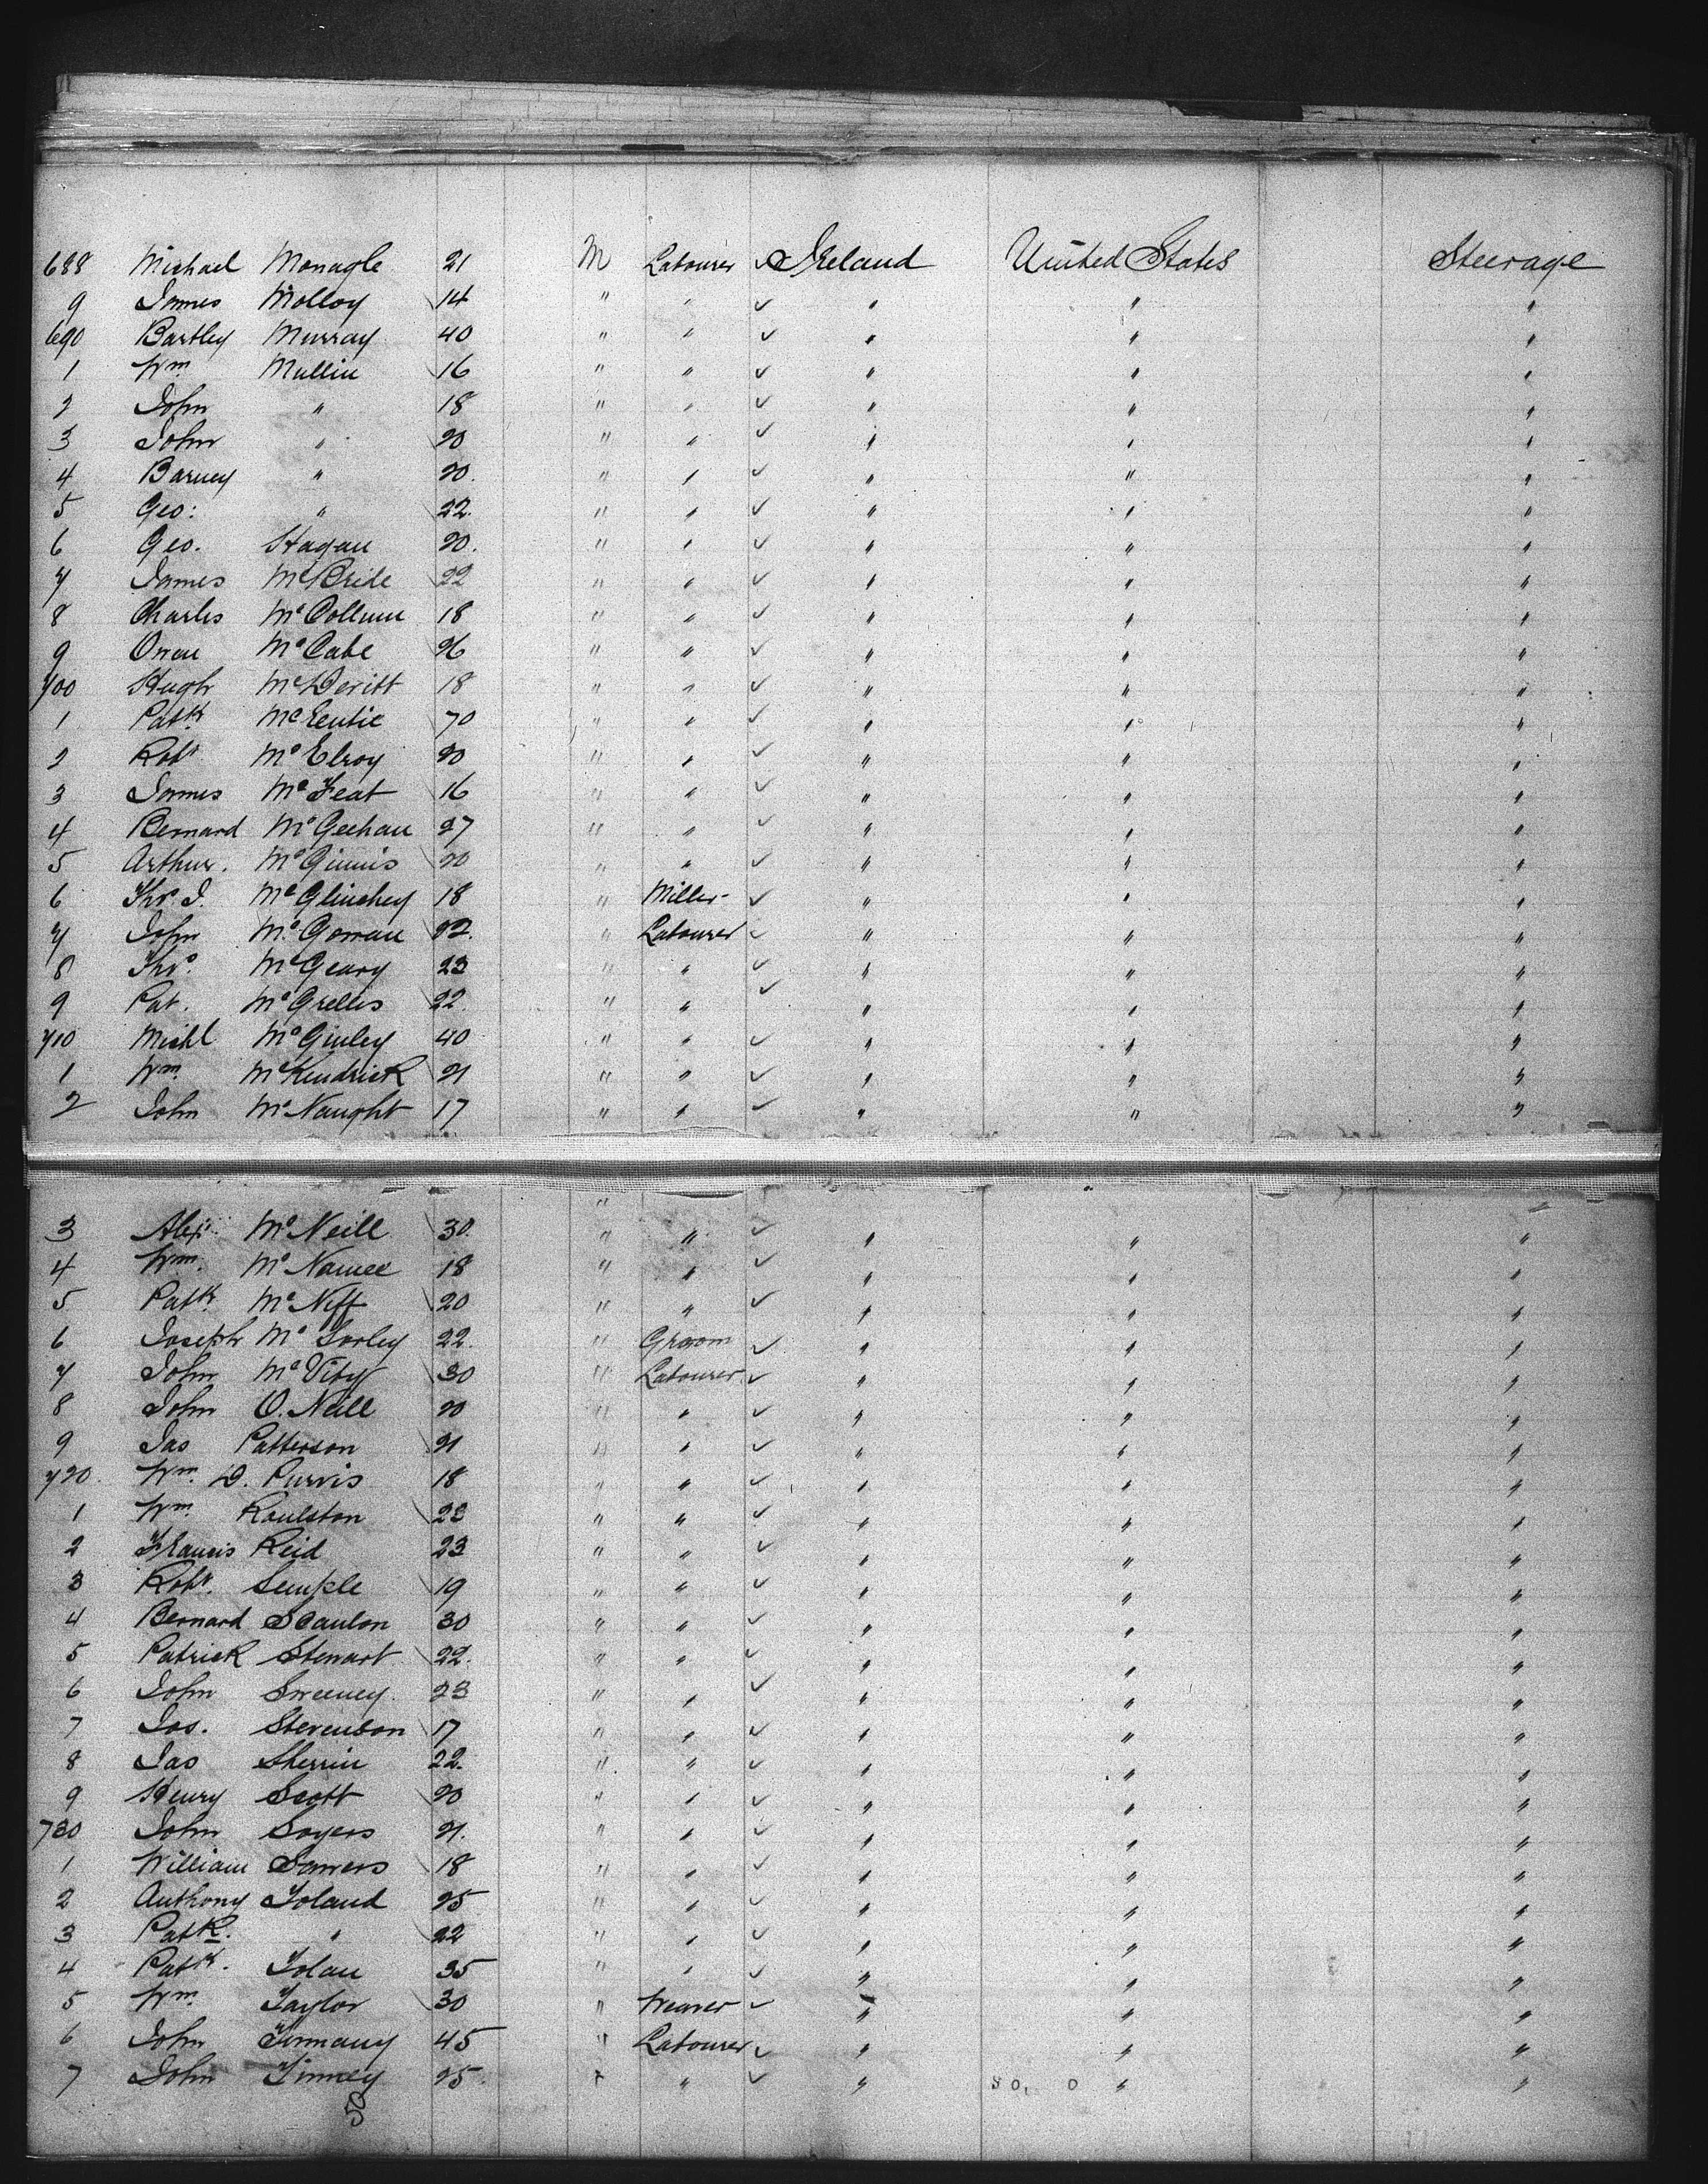 688 Michael Monagle 21 M Labourer ✓ Ireland United States Steerage
9 James Molloy 14 " " ✓ " " "
690 Bartley Murray 40 " " ✓ " " "
1 Wm Mullin 16 " " ✓ " " "
2 John " 18 " " ✓ " " "
3 John " 20 " " ✓ " " "
4 Barney " 20. " " ✓ " " "
5 Geo: " 22. " " ✓ " " "
6 Geo. Hagan 20. " " ✓ " " "
7 James McBride 22 " " ✓ " " "
8 Charles McCollum 18 " " ✓ " " "
9 Owen McCabe 26 " " ✓ " " "
700 Hugh McDevitt 18 " " ✓ " " "
1 Patk McEentie 70 " " ✓ " " "
2 Robt McElroy 20 " " ✓ " " "
3 James McFeat 16 " " ✓ " " "
4 Bernard McGeehan 27 " " ✓ " " "
5 Arthur. McGinnis 20 " " ✓ " " "
6 Thos J. McGlinchey 18 " Miller ✓ " " "
7 John McGowan 22. " Labourer ✓ " " "
8 Thos. McGeary 23 " " ✓ " " "
9 Pat. McGrelles 22. " " ✓ " " "
710 Michl McGinley 40 " " ✓ " " "
1 Wm McKendrick 21 " " ✓ " " "
2 John McNaught 17 " " ✓ " " "
3 Alex McNeill 30. " " ✓ " " "
4 Wm. McNamee 18 " " ✓ " " "
5 Patk McNiff 20 " " ✓ " " "
6 Joseph McSorley 22. " Groom ✓ " " "
7 John McVity 30 " Labourer ✓ " " "
8 John O.Neill 20 " " ✓ " " "
9 Jas Patterson 21 " " ✓ " " "
720. Wm. D. Purvis 18 " " ✓ " " "
1 Wm. Roulston 23 " " ✓ " " "
2 Francis Reid 23 " " ✓ " " "
3 Robt. Semple 19 " " ✓ " " "
4 Bernard Scanlon 30 " " ✓ " " "
5 Patrick Stewart 22. " " ✓ " " "
6 John Sweeney. 23 " " ✓ " " "
7 Jos. Stevenson 17 " " ✓ " " "
8 Jas Sherrin 22. " " ✓ " " "
9 Henry Scott 20 " " ✓ " " "
730 John Soyers 21. " " ✓ " " "
1 William Somers 18 " " ✓ " " "
2 Anthony Toland 25 " " ✓ " " "
3 Patk. " 22 " " ✓ " " "
4 Patk. Tolan 35 " " ✓ " " "
5 Wm. Taylor 30 " Weaver ✓ " " "
6 John Timmany 45 " Labourer ✓ " " "
7 John Tinney 25. " " ✓ " " "
50